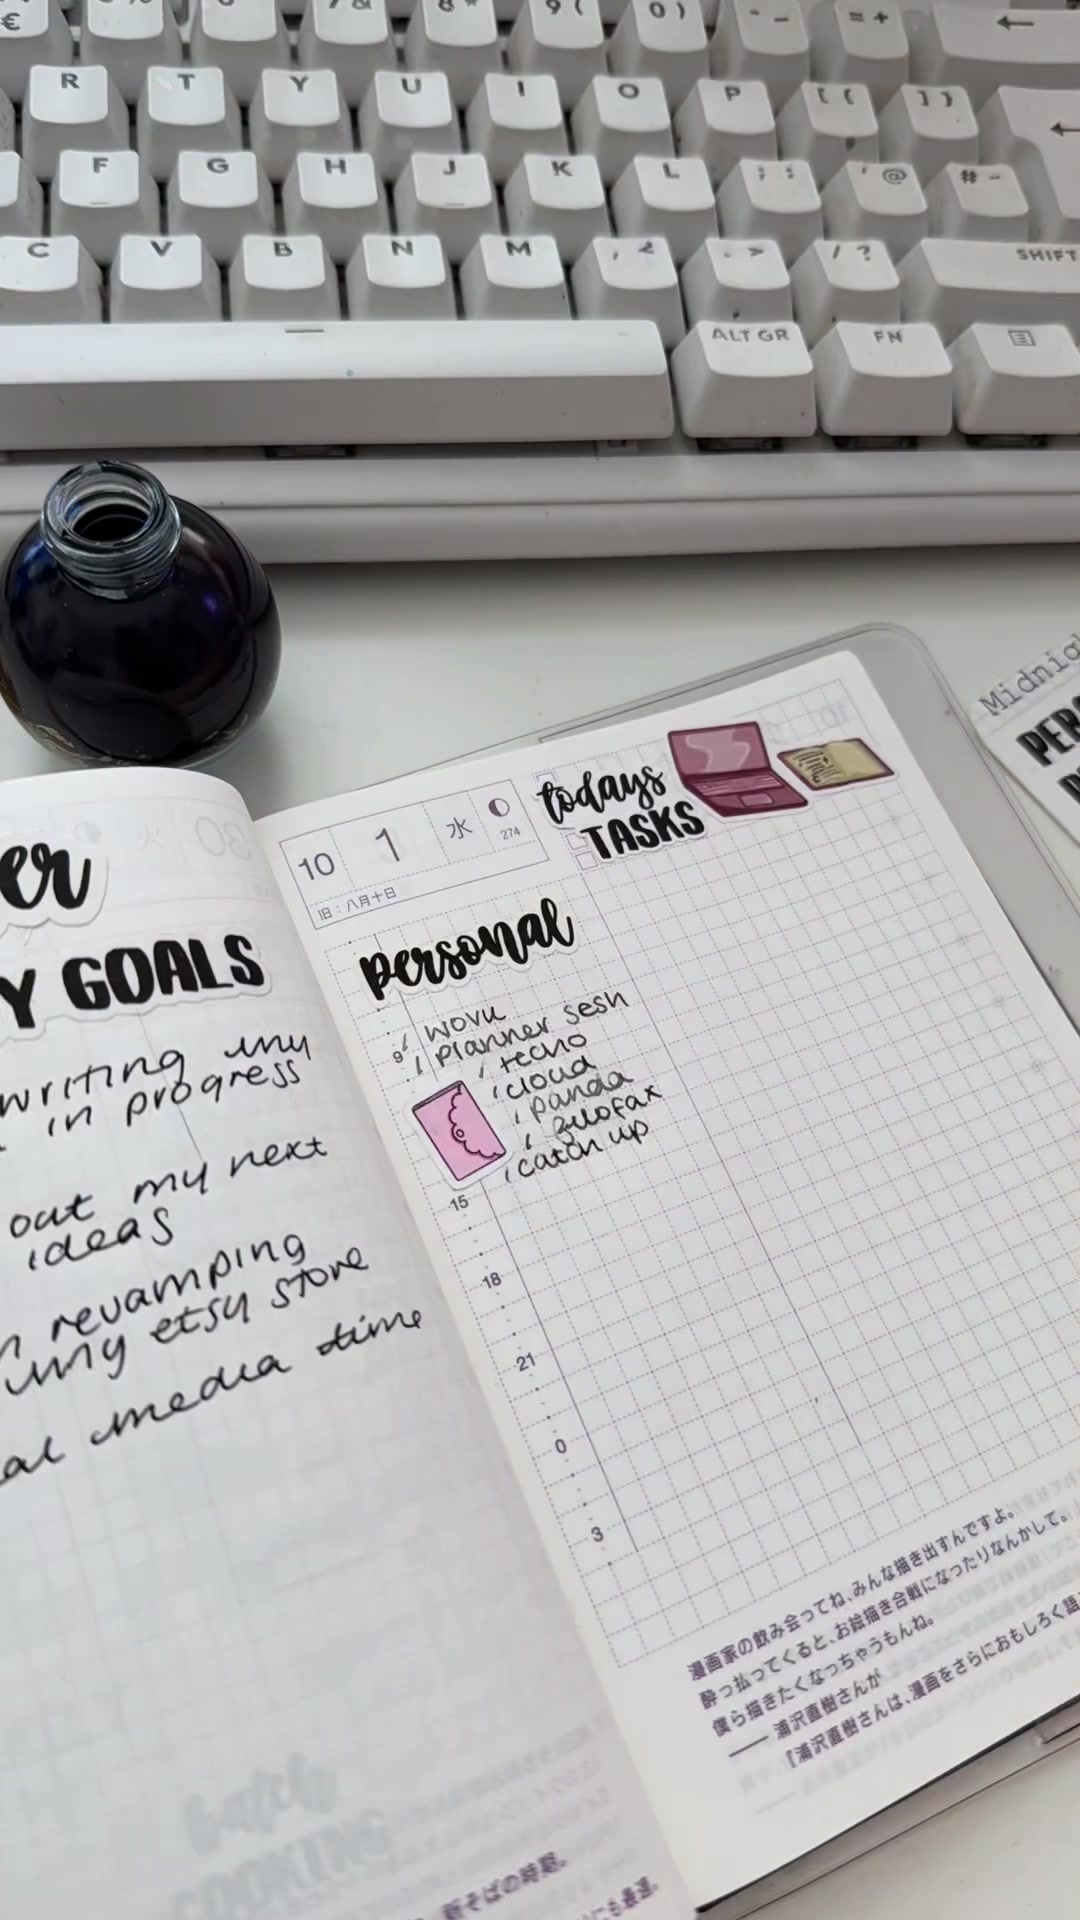 €
7 &
8 *
9 (
0 )
- _
= +
←
R T Y U I O P [ { ] }
F G H J K L ; : ' @ # ~
C V B N M , < . > / ? SHIFT
ALT GR FN
Midnig
PERS
er
Y GOALS
writing my
in progress
out my next
ideas
revamping
my etsy store
media time
10 1 水 274
旧:八月十日
todays
TASKS
personal
work
planner sesh
techo
cloud
panda
filofax
catch up
9
15
18
21
0
3
漫画家の飲み会ってね、みんな描き出すんですよ。
酔っ払ってくると、お絵描き合戦になったりなんかして。
僕ら描きたくなっちゃうもんね。
── 浦沢直樹さんが
『浦沢直樹さんは、漫画をさらにおもしろく語
batch
COOKING
新そばの時期。
にも最適。